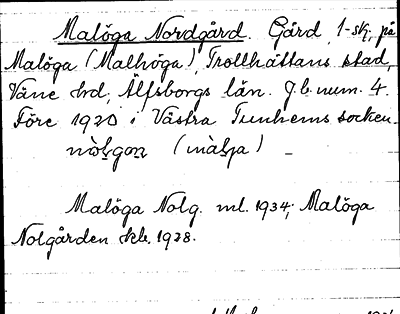 Malöga Nordgård. Gård, 1-stg, på
Malöga (Malhöga), Trollhättans stad,
Väne hrd, Älfsborgs län. J.b. num. 4.
Före 1920 i Västra Tunhems socken.
Malöga Nolg. ml. 1934; Malöga
Nolgården skk. 1928.